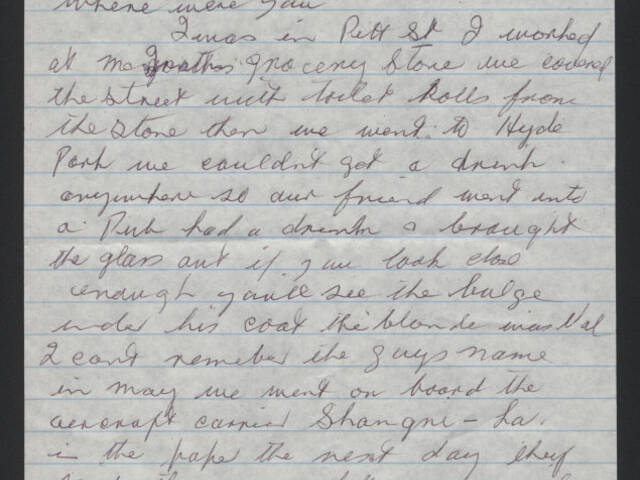 where were you
I was in Pitt St I worked
at McGraths grocery Store we covered
the street with toilet Rolls from
the store then we went to Hyde
Park we couldn't get a drink
anywhere so our friend went into
a Pub had a drink & brought
the glass out if you look close
enough you'll see the bulge
under his coat the blonde was Val
I cant remeber the guys name
in may we went on board the
aercraft carrier Shangri-La.
in the paper the next day they